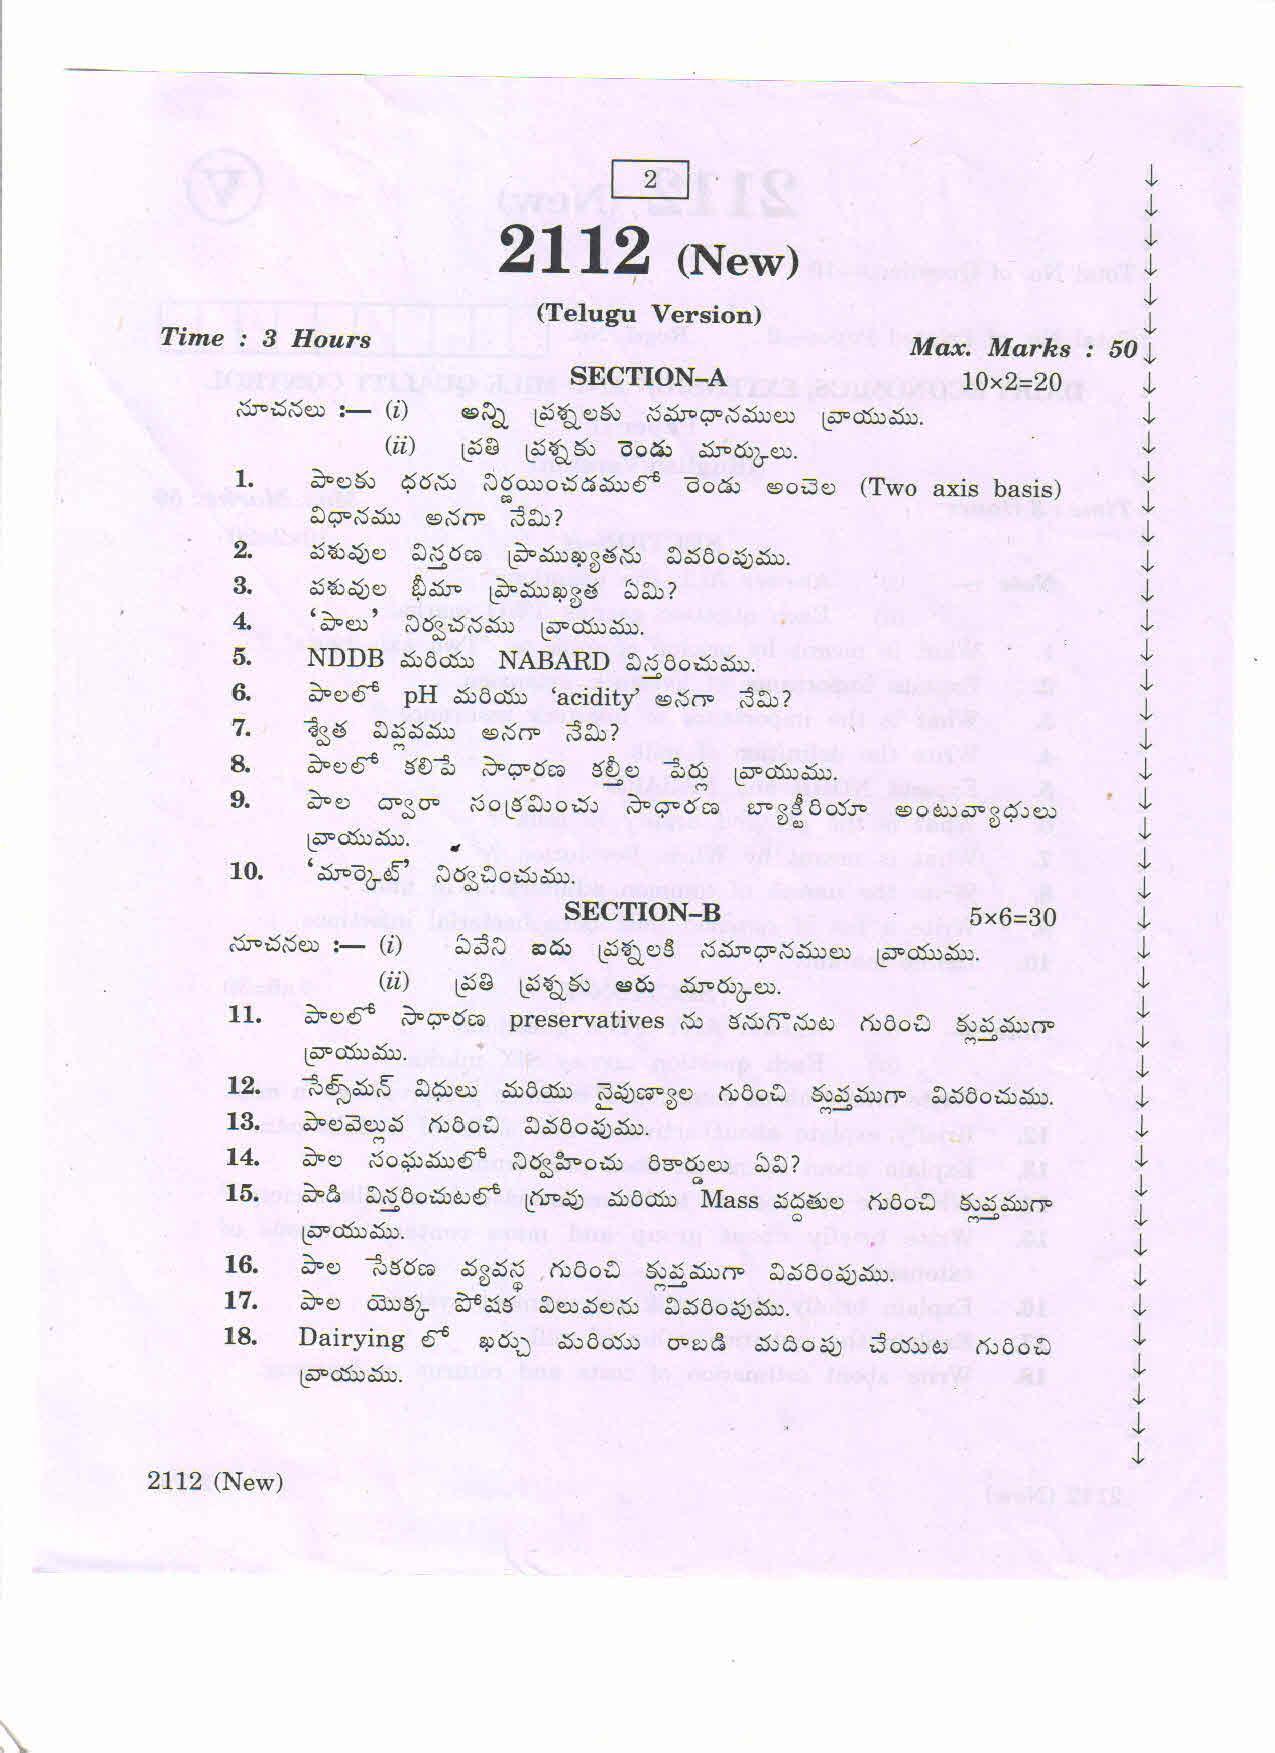 2
2112 (New)
(Telugu Version)
Time : 3 Hours
Max. Marks : 50
SECTION–A 10×2=20
సూచనలు :— (i) అన్ని ప్రశ్నలకు సమాధానములు వ్రాయుము.
(ii) ప్రతి ప్రశ్నకు రెండు మార్కులు.
1. పాలకు ధరను నిర్ణయించడములో రెండు అంచెల (Two axis basis)
విధానము అనగా నేమి?
2. పశువుల విస్తరణ ప్రాముఖ్యతను వివరింపుము.
3. పశువుల భీమా ప్రాముఖ్యత ఏమి?
4. ‘పాలు’ నిర్వచనము వ్రాయుము.
5. NDDB మరియు NABARD విస్తరించుము.
6. పాలలో pH మరియు ‘acidity’ అనగా నేమి?
7. శ్వేత విప్లవము అనగా నేమి?
8. పాలలో కలిపే సాధారణ కల్తీల పేర్లు వ్రాయుము.
9. పాల ద్వారా సంక్రమించు సాధారణ బ్యాక్టీరియా అంటువ్యాధులు
వ్రాయుము.
10. ‘మార్కెట్’ నిర్వచించుము.
SECTION–B 5×6=30
సూచనలు :— (i) ఏవేని ఐదు ప్రశ్నలకి సమాధానములు వ్రాయుము.
(ii) ప్రతి ప్రశ్నకు ఆరు మార్కులు.
11. పాలలో సాధారణ preservatives ను కనుగొనుట గురించి క్లుప్తముగా
వ్రాయుము.
12. సేల్స్‌మన్ విధులు మరియు నైపుణ్యాల గురించి క్లుప్తముగా వివరించుము.
13. పాలవెల్లువ గురించి వివరింపుము.
14. పాల సంఘములో నిర్వహించు రికార్డులు ఏవి?
15. పాడి విస్తరించుటలో గ్రూపు మరియు Mass పద్దతుల గురించి క్లుప్తముగా
వ్రాయుము.
16. పాల సేకరణ వ్యవస్థ గురించి క్లుప్తముగా వివరింపుము.
17. పాల యొక్క పోషక విలువలను వివరింపుము.
18. Dairying లో ఖర్చు మరియు రాబడి మదింపు చేయుట గురించి
వ్రాయుము.
2112 (New)